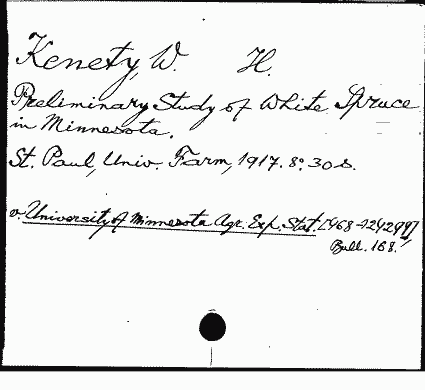 Kenety, W. H.
Preliminary Study of White Spruce
in Minnesota.
St. Paul, Univ. Farm, 1917. 8°. 30 s.
v. University of Minnesota Agr. Exp. Stat. [468-24299]
Bull. 168.